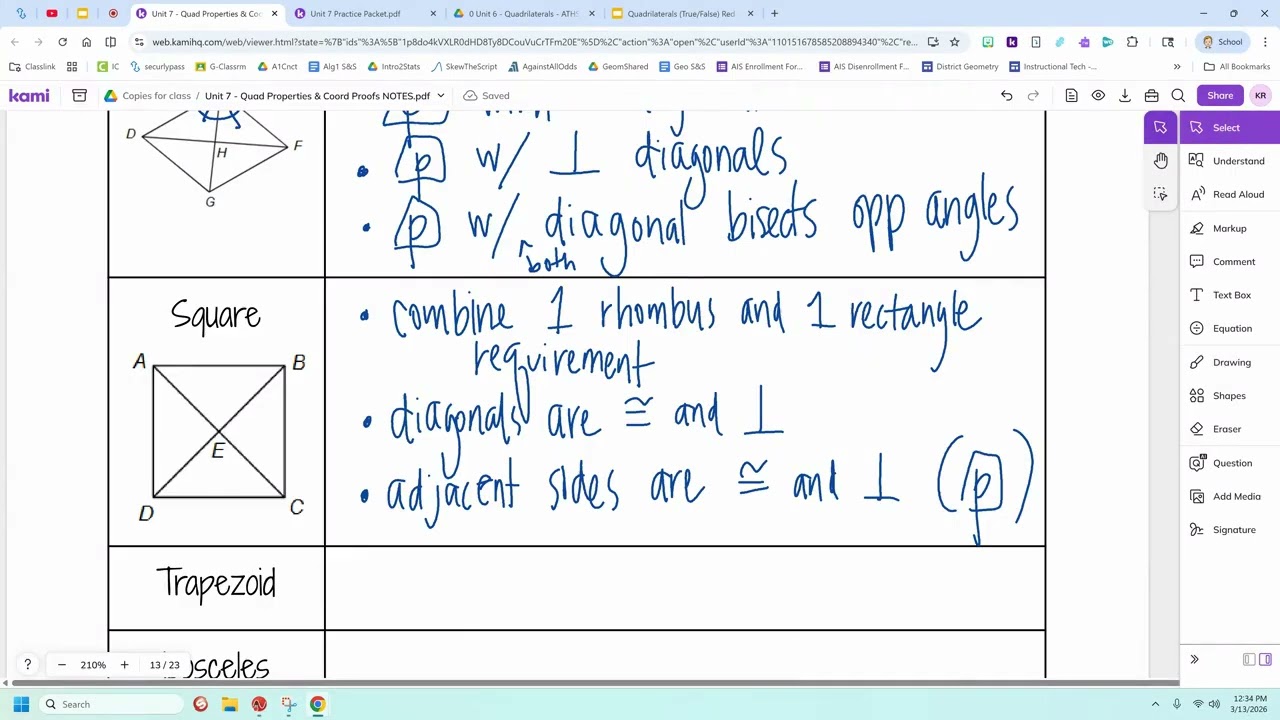 Unit 7 - Quad Properties & Coo
Unit 7 Practice Packet.pdf
0 Unit 6 - Quadrilaterals - ATHS
Quadrilaterals (True/False) Red
web.kamihq.com/web/viewer.html?state=%7B"ids"%3A%5B"1p8do4kVXLR0dHD8Ty8DCouVuCrTFm20E"%5D%2C"action"%3A"open"%2C"userId"%3A"110151678585208894340"%2C"re...
School
Classlink
IC
securlypass
G-Classrm
A1Cnct
Alg1 S&S
Intro2Stats
SkewTheScript
AgainstAllOdds
GeomShared
Geo S&S
AIS Enrollment For...
AIS Disenrollment F...
District Geometry
Instructional Tech -...
All Bookmarks
kami
Copies for class / Unit 7 - Quad Properties & Coord Proofs NOTES.pdf
Saved
Share
KR
D
H
F
G
• p w/ ⊥ diagonals
• p w/ diagonal bisects opp angles
both
Square
A
B
E
D
C
• combine 1 rhombus and 1 rectangle
requirement
• diagonals are ≅ and ⊥
• adjacent sides are ≅ and ⊥ (p)
Trapezoid
Select
Understand
Read Aloud
Markup
Comment
Text Box
Equation
Drawing
Shapes
Eraser
Question
Add Media
Signature
? − 210% + 13 / 23
Search
12:34 PM
3/13/2026